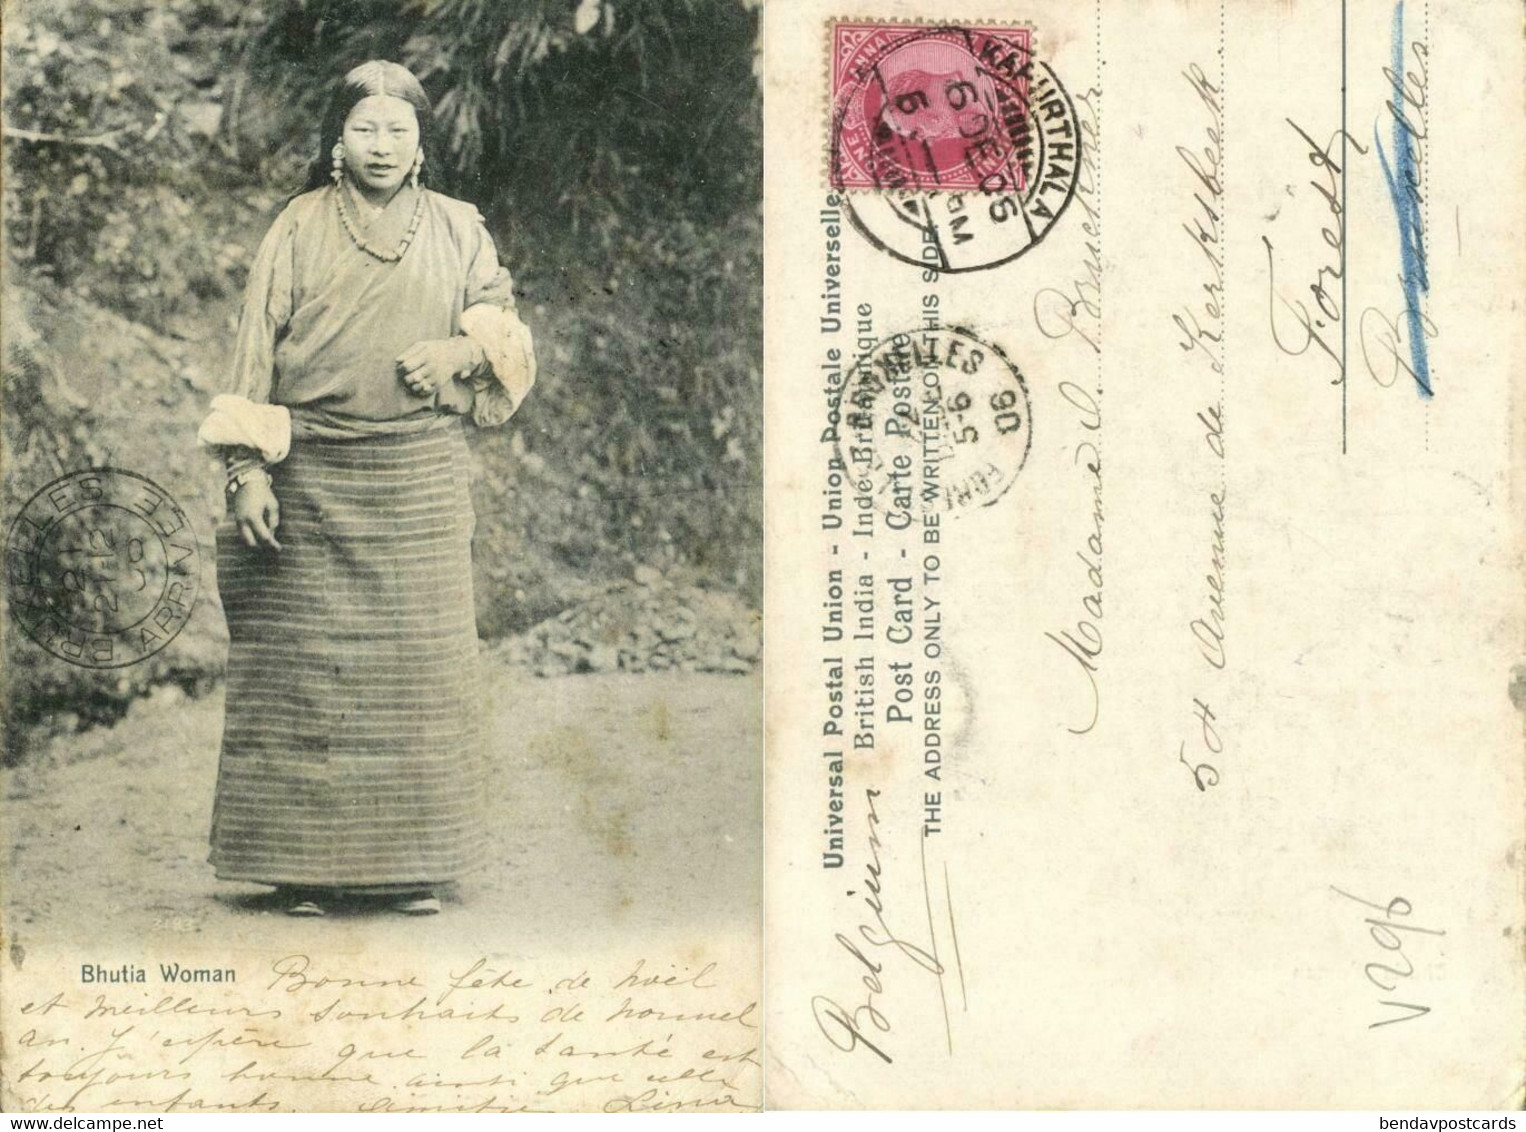 Bhutia Woman
Bonne fête de Noël
et meilleurs souhaits de nouvel
an. J'espère que la santé est
toujours bonne ainsi que celle
des enfants. Lina
BRUXELLES
ARRIVEE
KAPURTHALA
6 DE 05
ONE ANNA
BRUXELLES
06
5-6
Universal Postal Union - Union Postale Universelle
British India - Inde Britannique
Post Card - Carte Postale
THE ADDRESS ONLY TO BE WRITTEN ON THIS SIDE
Madame
54 Avenue de Kerksbeek
Forest
Bruxelles
Belgium
V296
bendavpostcards